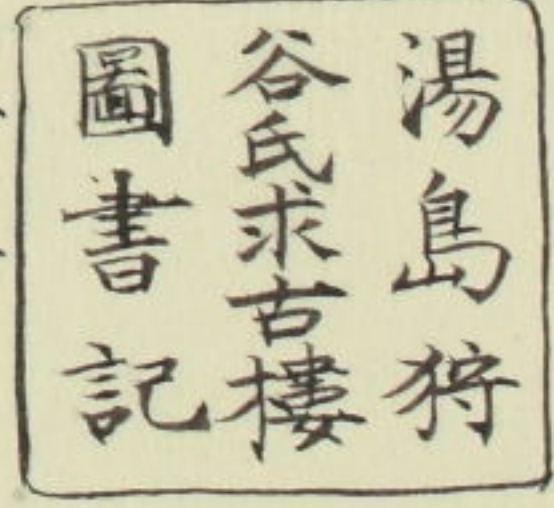 湯島狩
谷氏求古樓
圖書記